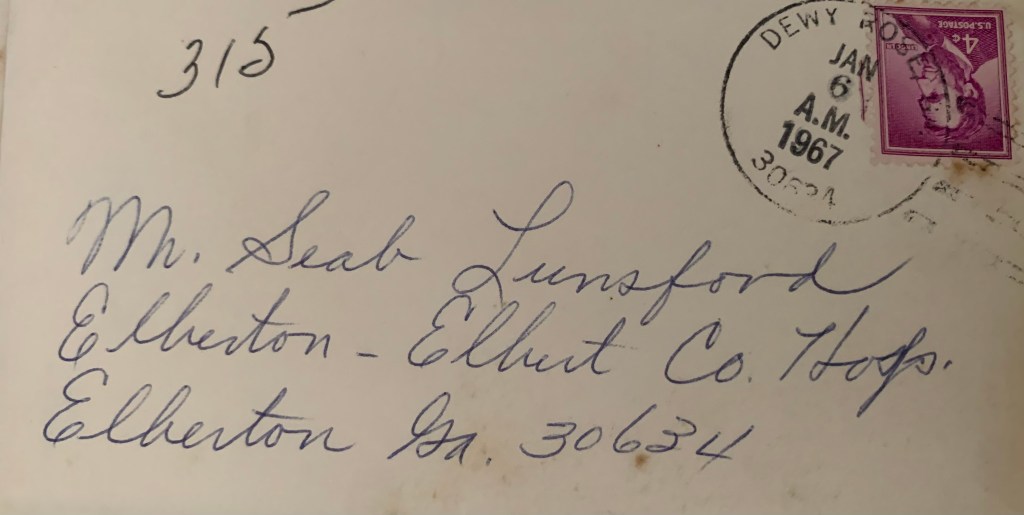 315
DEWY ROSE
JAN
6
A.M.
1967
U.S. POSTAGE
4¢
Mr. Seab Lunsford
Elberton - Elbert Co. Hosp.
Elberton Ga. 30634